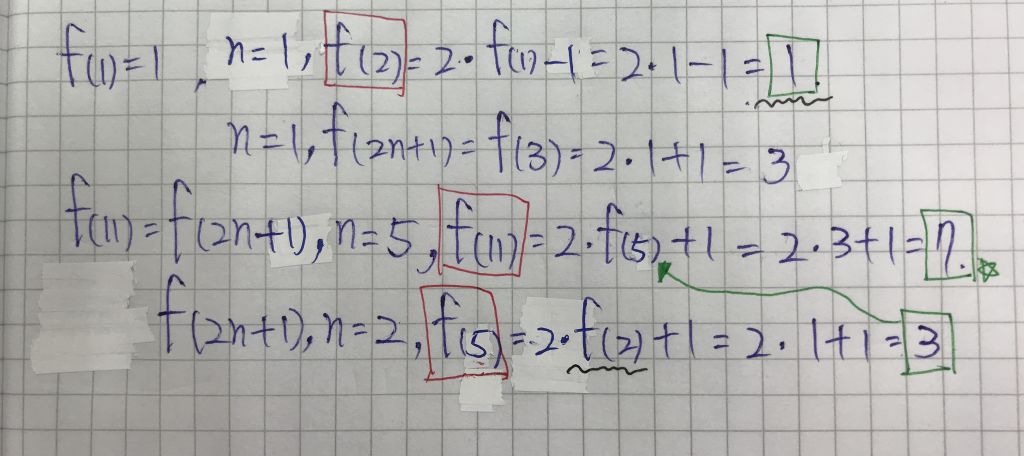 f(1)=1, n=1, f(2)=2·f(1)-1=2·1-1=1.
n=1, f(2n+1)=f(3)=2·1+1=3
f(11)=f(2n+1), n=5, f(11)=2·f(5)+1=2·3+1=7.☆
f(2n+1), n=2, f(5)=2·f(2)+1=2·1+1=3